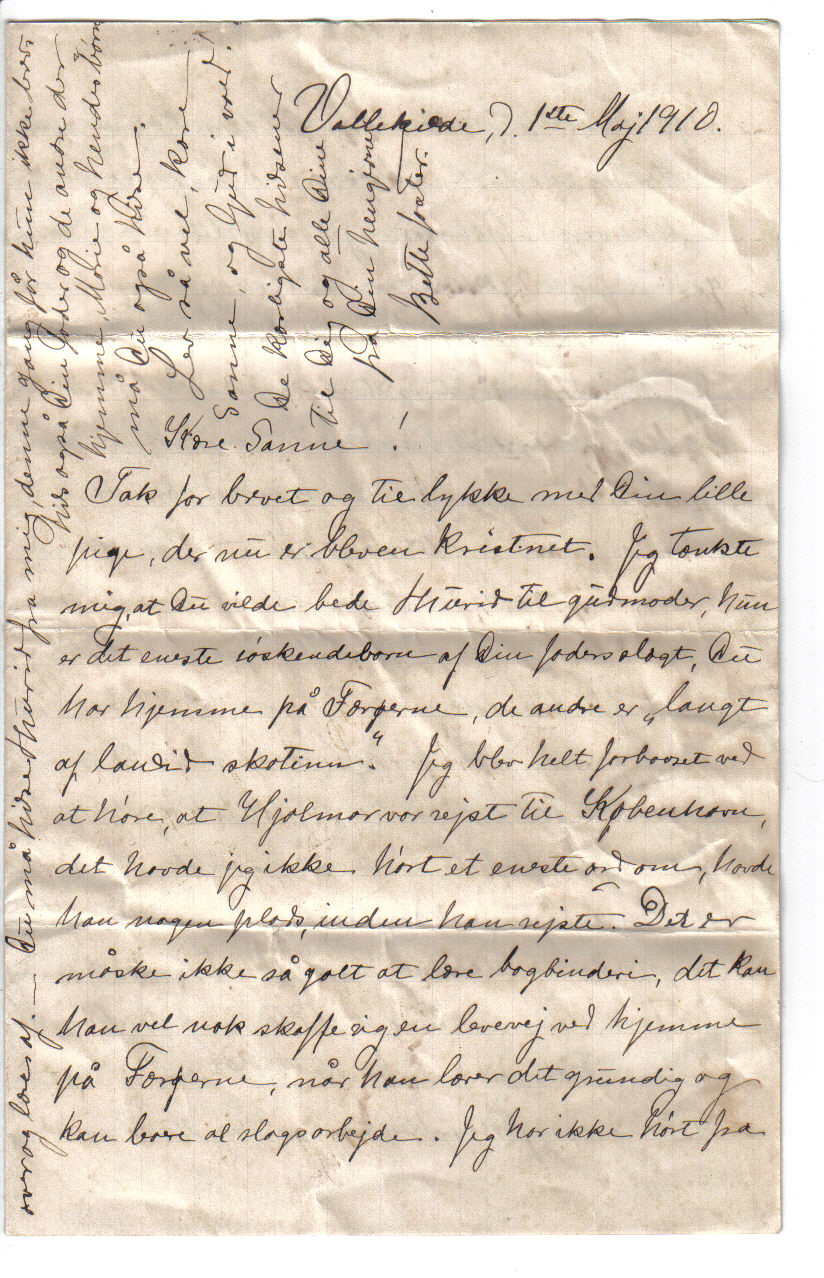 Vallekilde, d. 1ste Maj 1910.
Kære Sanne!
Tak for brevet og til lykke med Din lille
pige, der nu er bleven kristnet. Jeg tænkte
mig, at Du vilde bede Thurid til gudmoder, hun
er det eneste söskendebarn af Din faders slægt, Du
har hjemme på Færøerne, de andre er „langt
af landid skotinn“. Jeg blev helt forbavset ved
at höre, at Hjalmar var rejst til København,
det havde jeg ikke hört et eneste ord om, havde
han nogen plads, inden han rejste. Det er
måske ikke så galt at lære bogbinderi, det kan
han vel nok skaffe sig en levevej ved hjemme
på Færøerne, når han lærer det grundig og
kan bare al slags arbejde. Jeg har ikke hört fra
over og læes af. — Du må hilse Thurid fra mig, denne gang får hun ikke brev.
Hils også Din fader og de andre der
hjemme, Marie og hendes börn
må Du også hilse.
Lev så vel, kære
Sanne, og Gud i vold.
De kærligste hilsener
til Dig og alle Dine
fra Din hengivne
Beth faster.